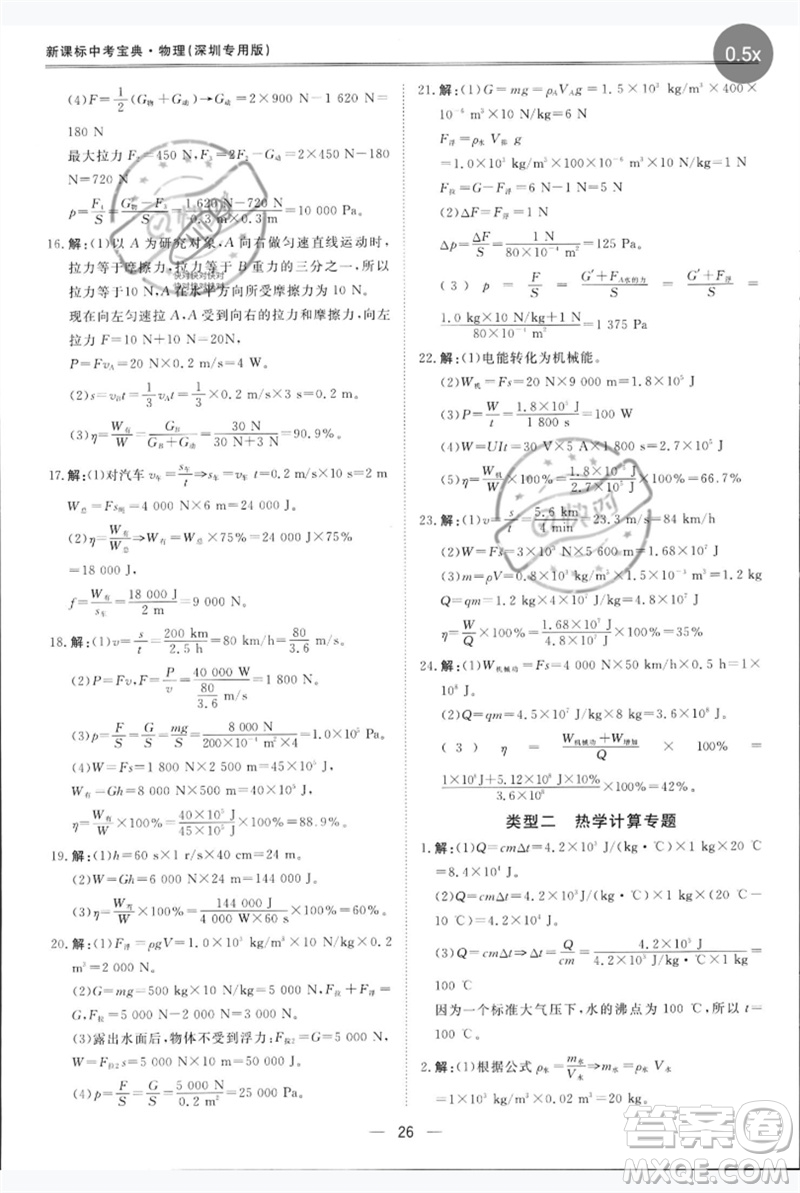 新课标中考宝典·物理(深圳专用版)
0.5x
(4)F=1/2(G物+G动)→G动=2×900 N-1 620 N=
180 N
最大拉力 F=450 N,F₃=2F-G动=2×450 N-180
N=720 N
p=F₄/S=(G物-F₃)/S=(1 620 N-720 N)/(0.3 m×0.3 m)=10 000 Pa.
16.解:(1)以 A 为研究对象,A 向右做匀速直线运动时,
拉力等于摩擦力,拉力等于 B 重力的三分之一,所以
拉力为10 N,A 在水平方向所受摩擦力为 10 N。
现在向左匀速拉 A 受到向右的拉力和摩擦力,因此
拉力 F=10 N+10 N=20 N,
P=FvA=20 N×0.2 m/s=4 W
(2)s=vBt=1/3vAt=1/3×0.2 m/s×3 s=0.2 m
(3)η=W有/W=GB/(GB+G动)=30 N/(30 N+3 N)=90.9%。
17.解:(1)对汽车 v车=s车/t⇒s车=v车t=0.2 m/s×10 s=2 m
W总=Fs绳=4 000 N×6 m=24 000 J,
(2)η=W有/W总⇒W有=W总×75%=24 000 J×75%
=18 000 J,
f=W有/s车=18 000 J/2 m=9 000 N。
18.解:(1)v=s/t=200 km/2.5 h=80 km/h=80/3.6 m/s
(2)P=Fv⇒F=P/v=40 000 W/(80/3.6 m/s)=1 800 N。
(3)p=F/S=G/S=mg/S=8 000 N/(200×10⁻⁴ m²×4)=1.0×10⁵ Pa
(4)W=Fs=45×10⁵ J
W有=Gh=40×10⁵ J
η=W有/W×100%=40×10⁵ J/45×10⁵ J×100%=88.9%。
19.解:(1)h=60 s×1 r/s×0.04 m/r=2.4 m
(2)W=Gh=6×10⁴ N×2.4 m=144 000 J
(3)η=W有/W×100%=144 000 J/180 000 J×100%=80%。
20.解:(1)F浮=ρgV=1.0×10³ kg/m³×10 N/kg×0.2
m³=2 000 N,
(2)G=mg=500 kg×10 N/kg=5 000 N,F拉+F浮=
G,F拉=3 000 N,
(3)露出水面后,物体不受到浮力:F拉2=G=5 000 N,
W=F拉2 s=5 000 N×2 m=10 000 J
(4)p=F/S=G/S=5 000 N/0.2 m²=25 000 Pa,
21.解:(1)G=mg=ρAVAg=1.5×10³ kg/m³×400×
10⁻⁶ m³×10 N/kg=6 N
F浮=ρ水 V排 g
=1.0×10³ kg/m³×100×10⁻⁶ m³×10 N/kg=1 N
F拉=G-F浮=6 N-1 N=5 N
(2)△F=F浮=1 N
△p=△F/S=1 N/(80×10⁻⁴ m²)=125 Pa。
(3) p=F/S=(G′+FA水的力)/S=(G′+F浮)/S=
(1.0 kg×10 N/kg+1 N)/(80×10⁻⁴ m²)=1 375 Pa
22.解:(1)电能转化为机械能。
(2)W机=Fs=20 N×9 000 m=1.8×10⁵ J
(3)P=W/t=1.8×10⁵ J/1 800 s=100 W
(4)W=UIt=30 V×5 A×1 800 s=2.7×10⁵ J
(5)η=W机/W×100%=1.8×10⁵ J/2.7×10⁵ J×100%=66.7%。
23.解:(1)v=s/t=5.6 km/4 min=23.3 m/s=84 km/h
(2)W=Fs=3×10³ N×5 600 m=1.68×10⁷ J
(3)m=ρV=1.2×10³ kg/m³×1×10⁻³ m³=1.2 kg
Q=qm=4×10⁷ J/kg×1.2 kg=4.8×10⁷ J
η=W/Q×100%=1.68×10⁷ J/4.8×10⁷ J×100%=35%。
24.解:(1)W机械功=Fs=4 000 N×50 km/h×0.5 h=1×
10⁸ J。
(2)Q=qm=4.5×10⁷ J/kg×8 kg=3.6×10⁸ J。
(3) η=(W机械功+W增加)/Q×100%=
(1×10⁸ J+5.12×10⁷ J)/3.6×10⁸ J×100%=42%。
类型二 热学计算专题
1.解:(1)Q=cm△t=4.2×10³ J/(kg·℃)×1 kg×20 ℃
=8.4×10⁴ J。
(2)Q=cm△t=4.2×10³ J/(kg·℃)×10 kg×(20 ℃-
10 ℃)=4.2×10⁵ J
(3)Q=cm△t⇒△t=Q/cm=4.2×10⁵ J/(4.2×10³ J/(kg·℃)×1 kg)=
100 ℃
因为一个标准大气压下,水的沸点为 100 ℃,所以 t=
100 ℃。
2.解:(1)根据公式 ρ水=m水/V水⇒m水=ρ水 V水
=1×10³ kg/m³×0.02 m³=20 kg,
26
答案圈
MXQE.COM
快对